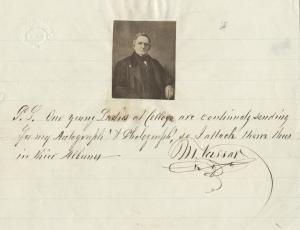 P.S. Our young Ladies at College are continualy sending
for my Autograph & Photograph, so I attach them thus
in their Albums
M. Vassar